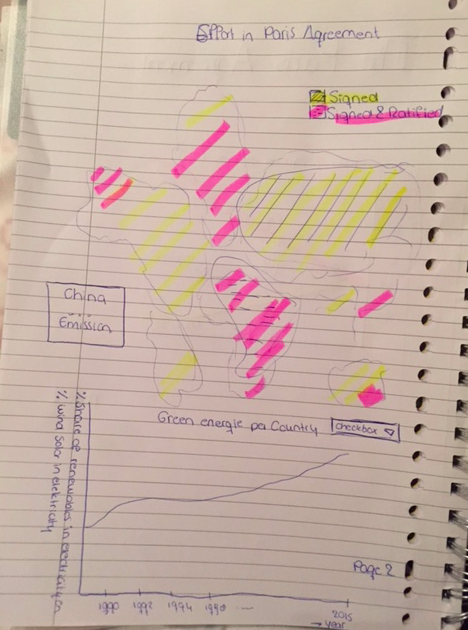 Effort in Paris Agreement
Signed
Signed & Ratified
China
Emission
Green energie per Country
checkbox
% share of renewables in electricity
% wind solar in electricity
Page 2
1990 1992 1994 1990 ....
2015
→ year